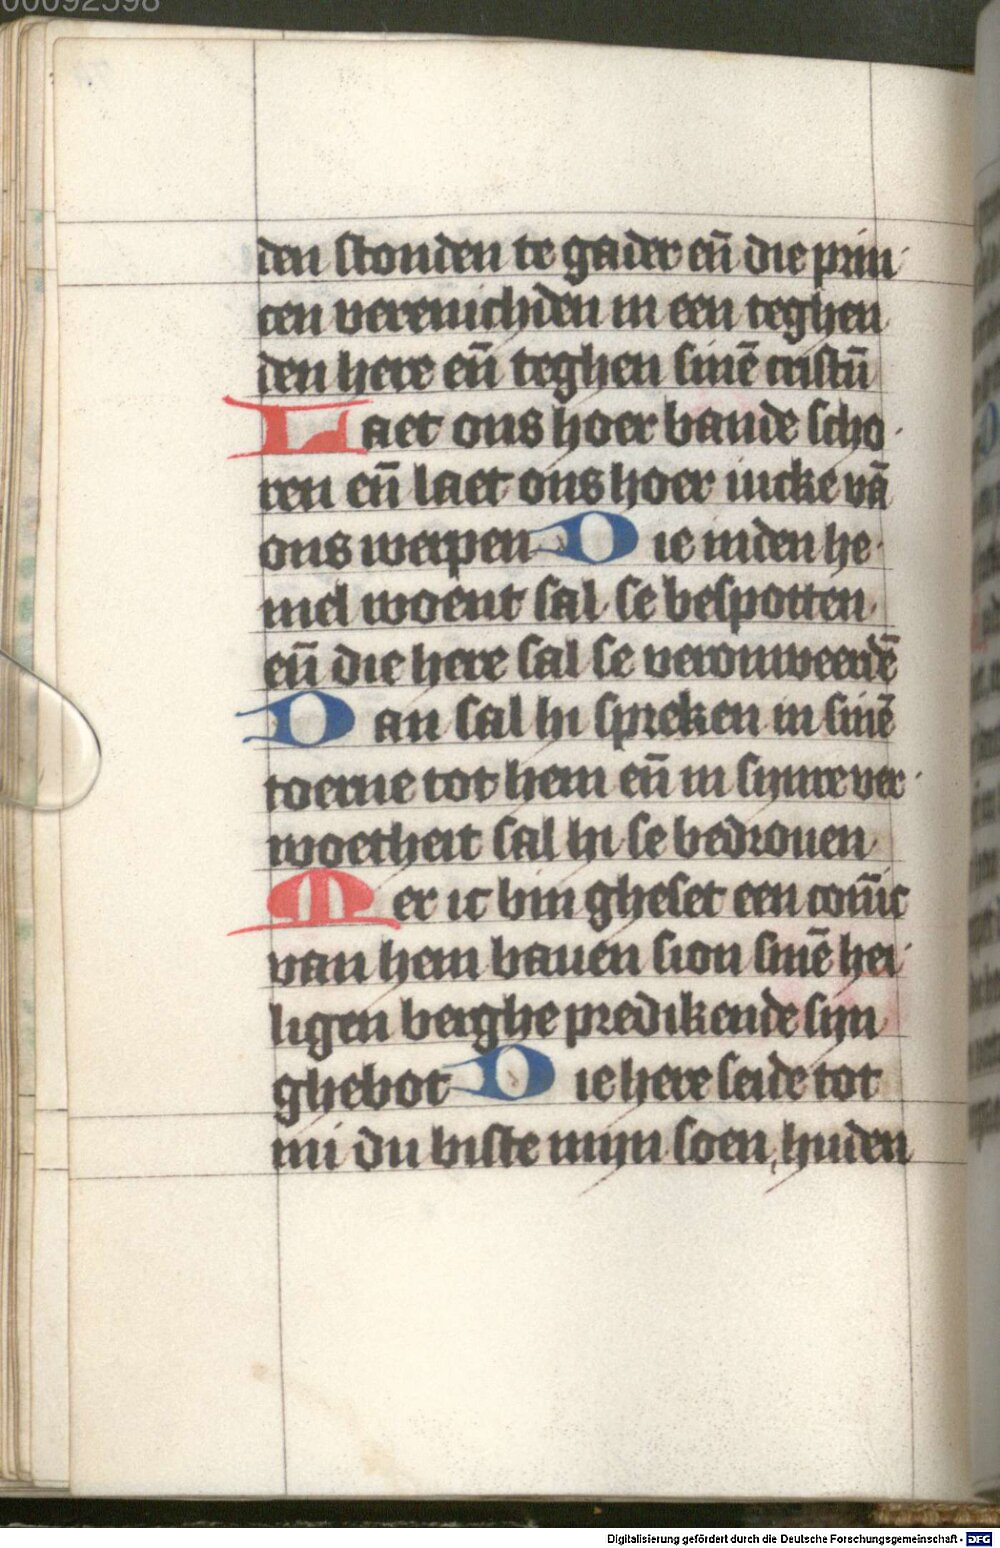 00092598
den stonden te gader en̄ die prin
cen verenichden in een teghen
den here en̄ teghen sinē cristū
Laet ons hoer bande scho
ren en̄ laet ons hoer iucke vā
ons werpen Die inden he
mel woent sal se bespotten
en̄ die here sal se veronweerdē
Dan sal hi spreken in sinē
toerne tot hem en̄ in sijnre ver
woetheit sal hi se bedrouen
Mer ic bin gheset een coni̅c
van hem bauen sion sinē hei
ligen berghe predikende sijn
ghebot Die here seide tot
mi du biste mijn soen, huden
Digitalisierung gefördert durch die Deutsche Forschungsgemeinschaft - DFG